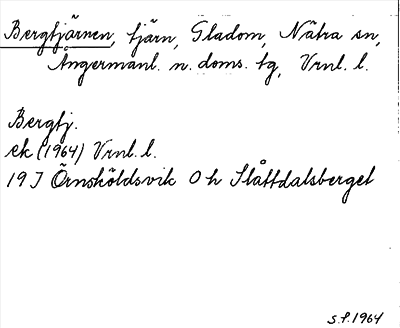 Bergtjärnen, tjärn, Gladom, Nätra sn,
Ångermanl. n. doms. tg, Vrnl. l.
Bergtj.
ek (1964) Vrnl. l.
19 J Örnsköldsvik 0 h Slåttdalsberget
S.f. 1964